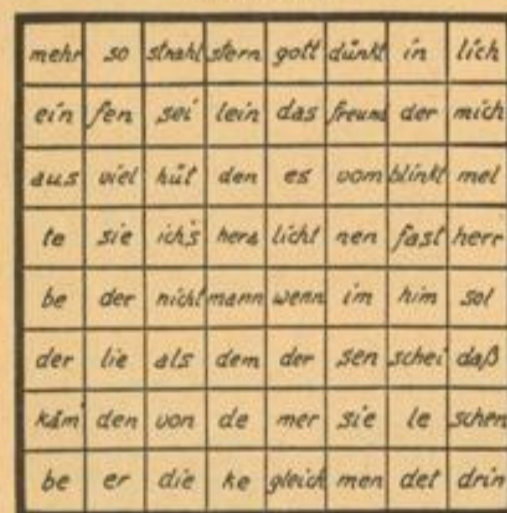 mehr so strahl stern gott dünkt in lich
ein fen sei lein das freund der mich
aus viel hüt den es vom blinkt mel
te sie ich's herz licht nen fast herr
be der nicht mann wenn im him sol
der lie als dem der sen schei daß
käm' den von de mer sie le schen
be er die ke gleich men det drin